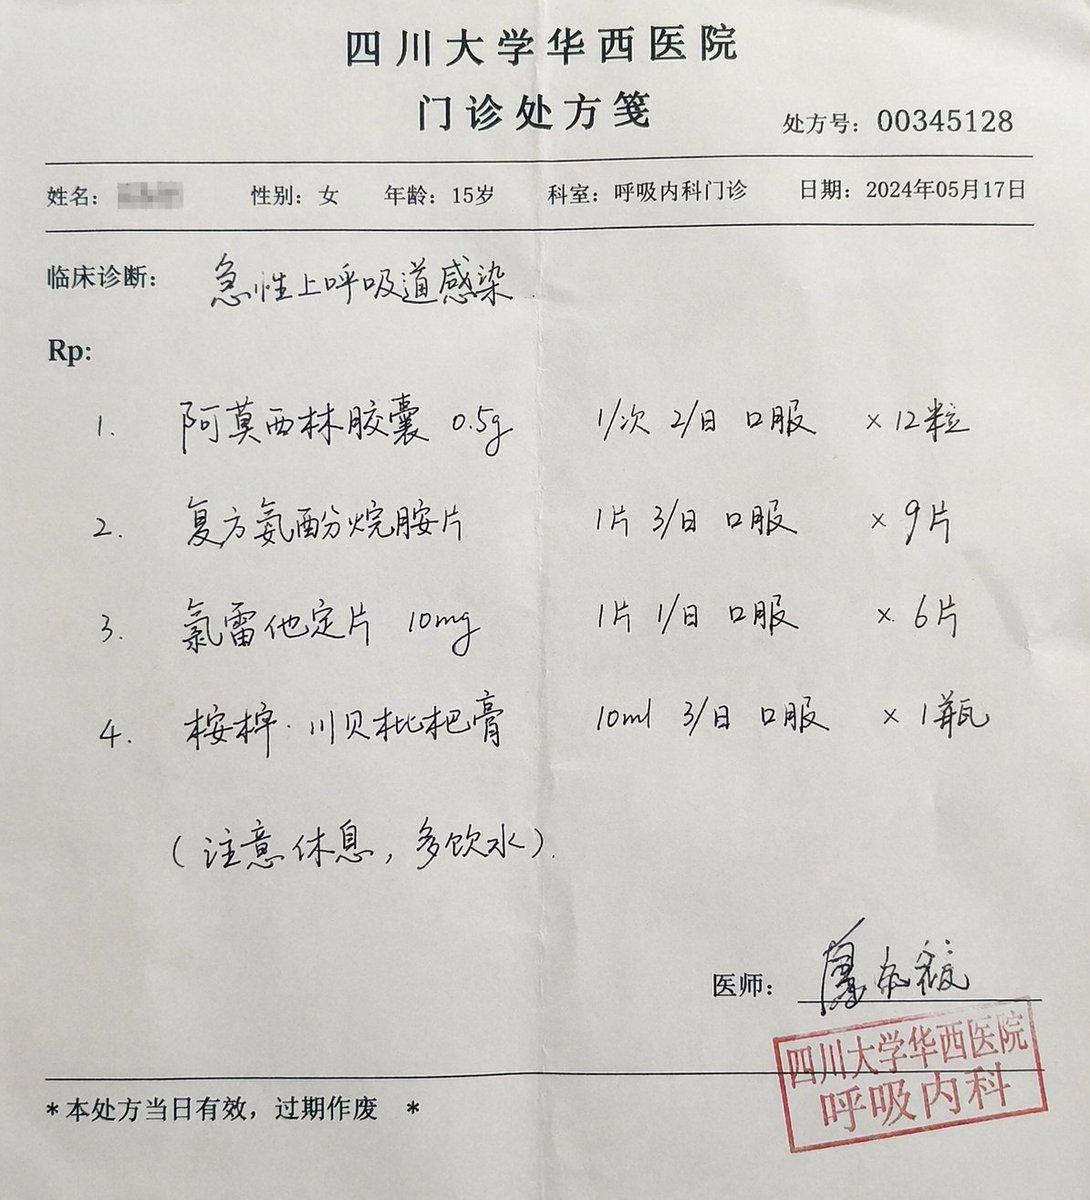 四川大学华西医院
门诊处方笺
处方号：00345128
姓名： 性别：女 年龄：15岁 科室：呼吸内科门诊 日期：2024年05月17日
临床诊断： 急性上呼吸道感染
Rp:
1. 阿莫西林胶囊 0.5g 1/次 2/日 口服 ×12粒
2. 复方氨酚烷胺片 1片 3/日 口服 ×9片
3. 氯雷他定片 10mg 1片 1/日 口服 ×6片
4. 桉柠·川贝枇杷膏 10ml 3/日 口服 ×1瓶
（注意休息，多饮水）.
医师：
四川大学华西医院
呼吸内科
*本处方当日有效，过期作废 *